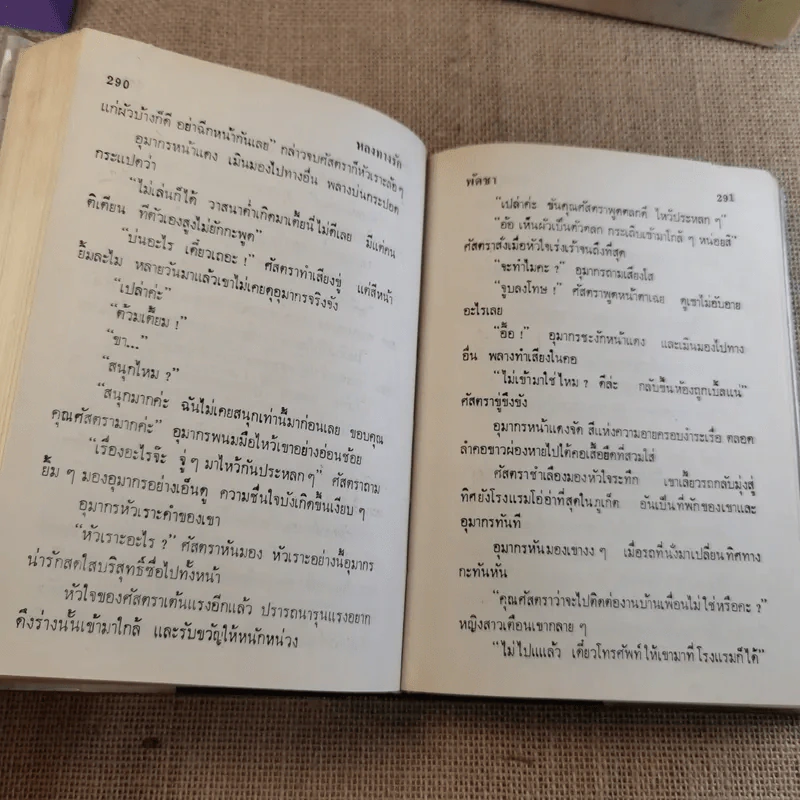 290
หลงทางรัก
แก่ผัวบ้างก็ดี อย่าฉีกหน้ากันเลย” กล่าวจบศัสตราก็หัวเราะล้อๆ
อุมากรหน้าแดง เมินมองไปทางอื่น พลางบ่นกระปอด
กระแปดว่า
“ไม่เล่นก็ได้ วาสนาต่ำเกิดมาเตี้ยนี่ไม่ดีเลย มีแต่คน
ติเตียน ทีตัวเองสูงไม่ยักกะพูด”
“บ่นอะไร เดี๋ยวเถอะ !” ศัสตราทำเสียงขู่ แต่สีหน้า
ยิ้มละไม หลายวันมาแล้วเขาไม่เคยดุอุมากรจริงจัง
“เปล่าค่ะ”
“ต้วมเตี้ยม !”
“ขา...”
“สนุกไหม ?”
“สนุกมากค่ะ ฉันไม่เคยสนุกเท่านี้มาก่อนเลย ขอบคุณ
คุณศัสตรามากค่ะ” อุมากรพนมมือไหว้เขาอย่างอ่อนช้อย
“เรื่องอะไรจ๊ะ จู่ๆ มาไหว้กันประหลกๆ” ศัสตราถาม
ยิ้ม ๆ มองอุมากรอย่างเอ็นดู ความชื่นใจบังเกิดขึ้นเงียบ ๆ
อุมากรหัวเราะคำของเขา
“หัวเราะอะไร ?” ศัสตราหันมอง หัวเราะอย่างนี้อุมากร
น่ารักสดใสบริสุทธิ์ซื่อไปทั้งหน้า
หัวใจของศัสตราเต้นแรงอีกแล้ว ปรารถนารุนแรงอยาก
ดึงร่างนั้นเข้ามาใกล้ และรับขวัญให้หนักหน่วง
พัดชา
291
“เปล่าค่ะ ขันคุณศัสตราพูดตลกดี ไหว้ประหลก ๆ”
“อ้อ เห็นผัวเป็นตัวตลก กระเถิบเข้ามาใกล้ ๆ หน่อยสิ”
ศัสตราสั่งเมื่อหัวใจเร่งเร้าจนถึงที่สุด
“จะทำไมคะ ?” อุมากรถามเสียงใส
“จูบลงโทษ !” ศัสตราพูดหน้าตาเฉย ดูเขาไม่อับอาย
อะไรเลย
“อื้อ !” อุมากรชะงักหน้าแดง และเมินมองไปทาง
อื่น พลางทำเสียงในคอ
“ไม่เข้ามาใช่ไหม ? ดีล่ะ กลับขึ้นห้องถูกเบิ้ลแน่”
ศัสตราขู่ขึงขัง
อุมากรหน้าแดงจัด สีแห่งความอายครอบงำระเรื่อ ตลอด
ลำคอขาวผ่องหายไปใต้คอเสื้อยืดที่สวมใส่
ศัสตราชำเลืองมองหัวใจระทึก เขาเลี้ยวรถกลับมุ่งสู่
ทิศยังโรงแรมโอ่อ่าที่สุดในภูเก็ต อันเป็นที่พักของเขาและ
อุมากรทันที
อุมากรหันมองเขางง ๆ เมื่อรถที่นั่งมาเปลี่ยนทิศทาง
กะทันหัน
“คุณศัสตราว่าจะไปติดต่องานบ้านเพื่อนไม่ใช่หรือคะ ?”
หญิงสาวเตือนเขากลาย ๆ
“ไม่ไปแแล้ว เดี๋ยวโทรศัพท์ให้เขามาที่โรงแรมก็ได้”